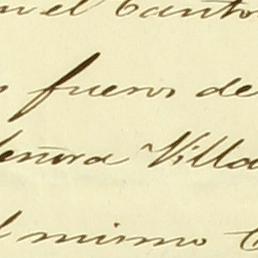 el Canto
fueros de
señora Villa
mismo